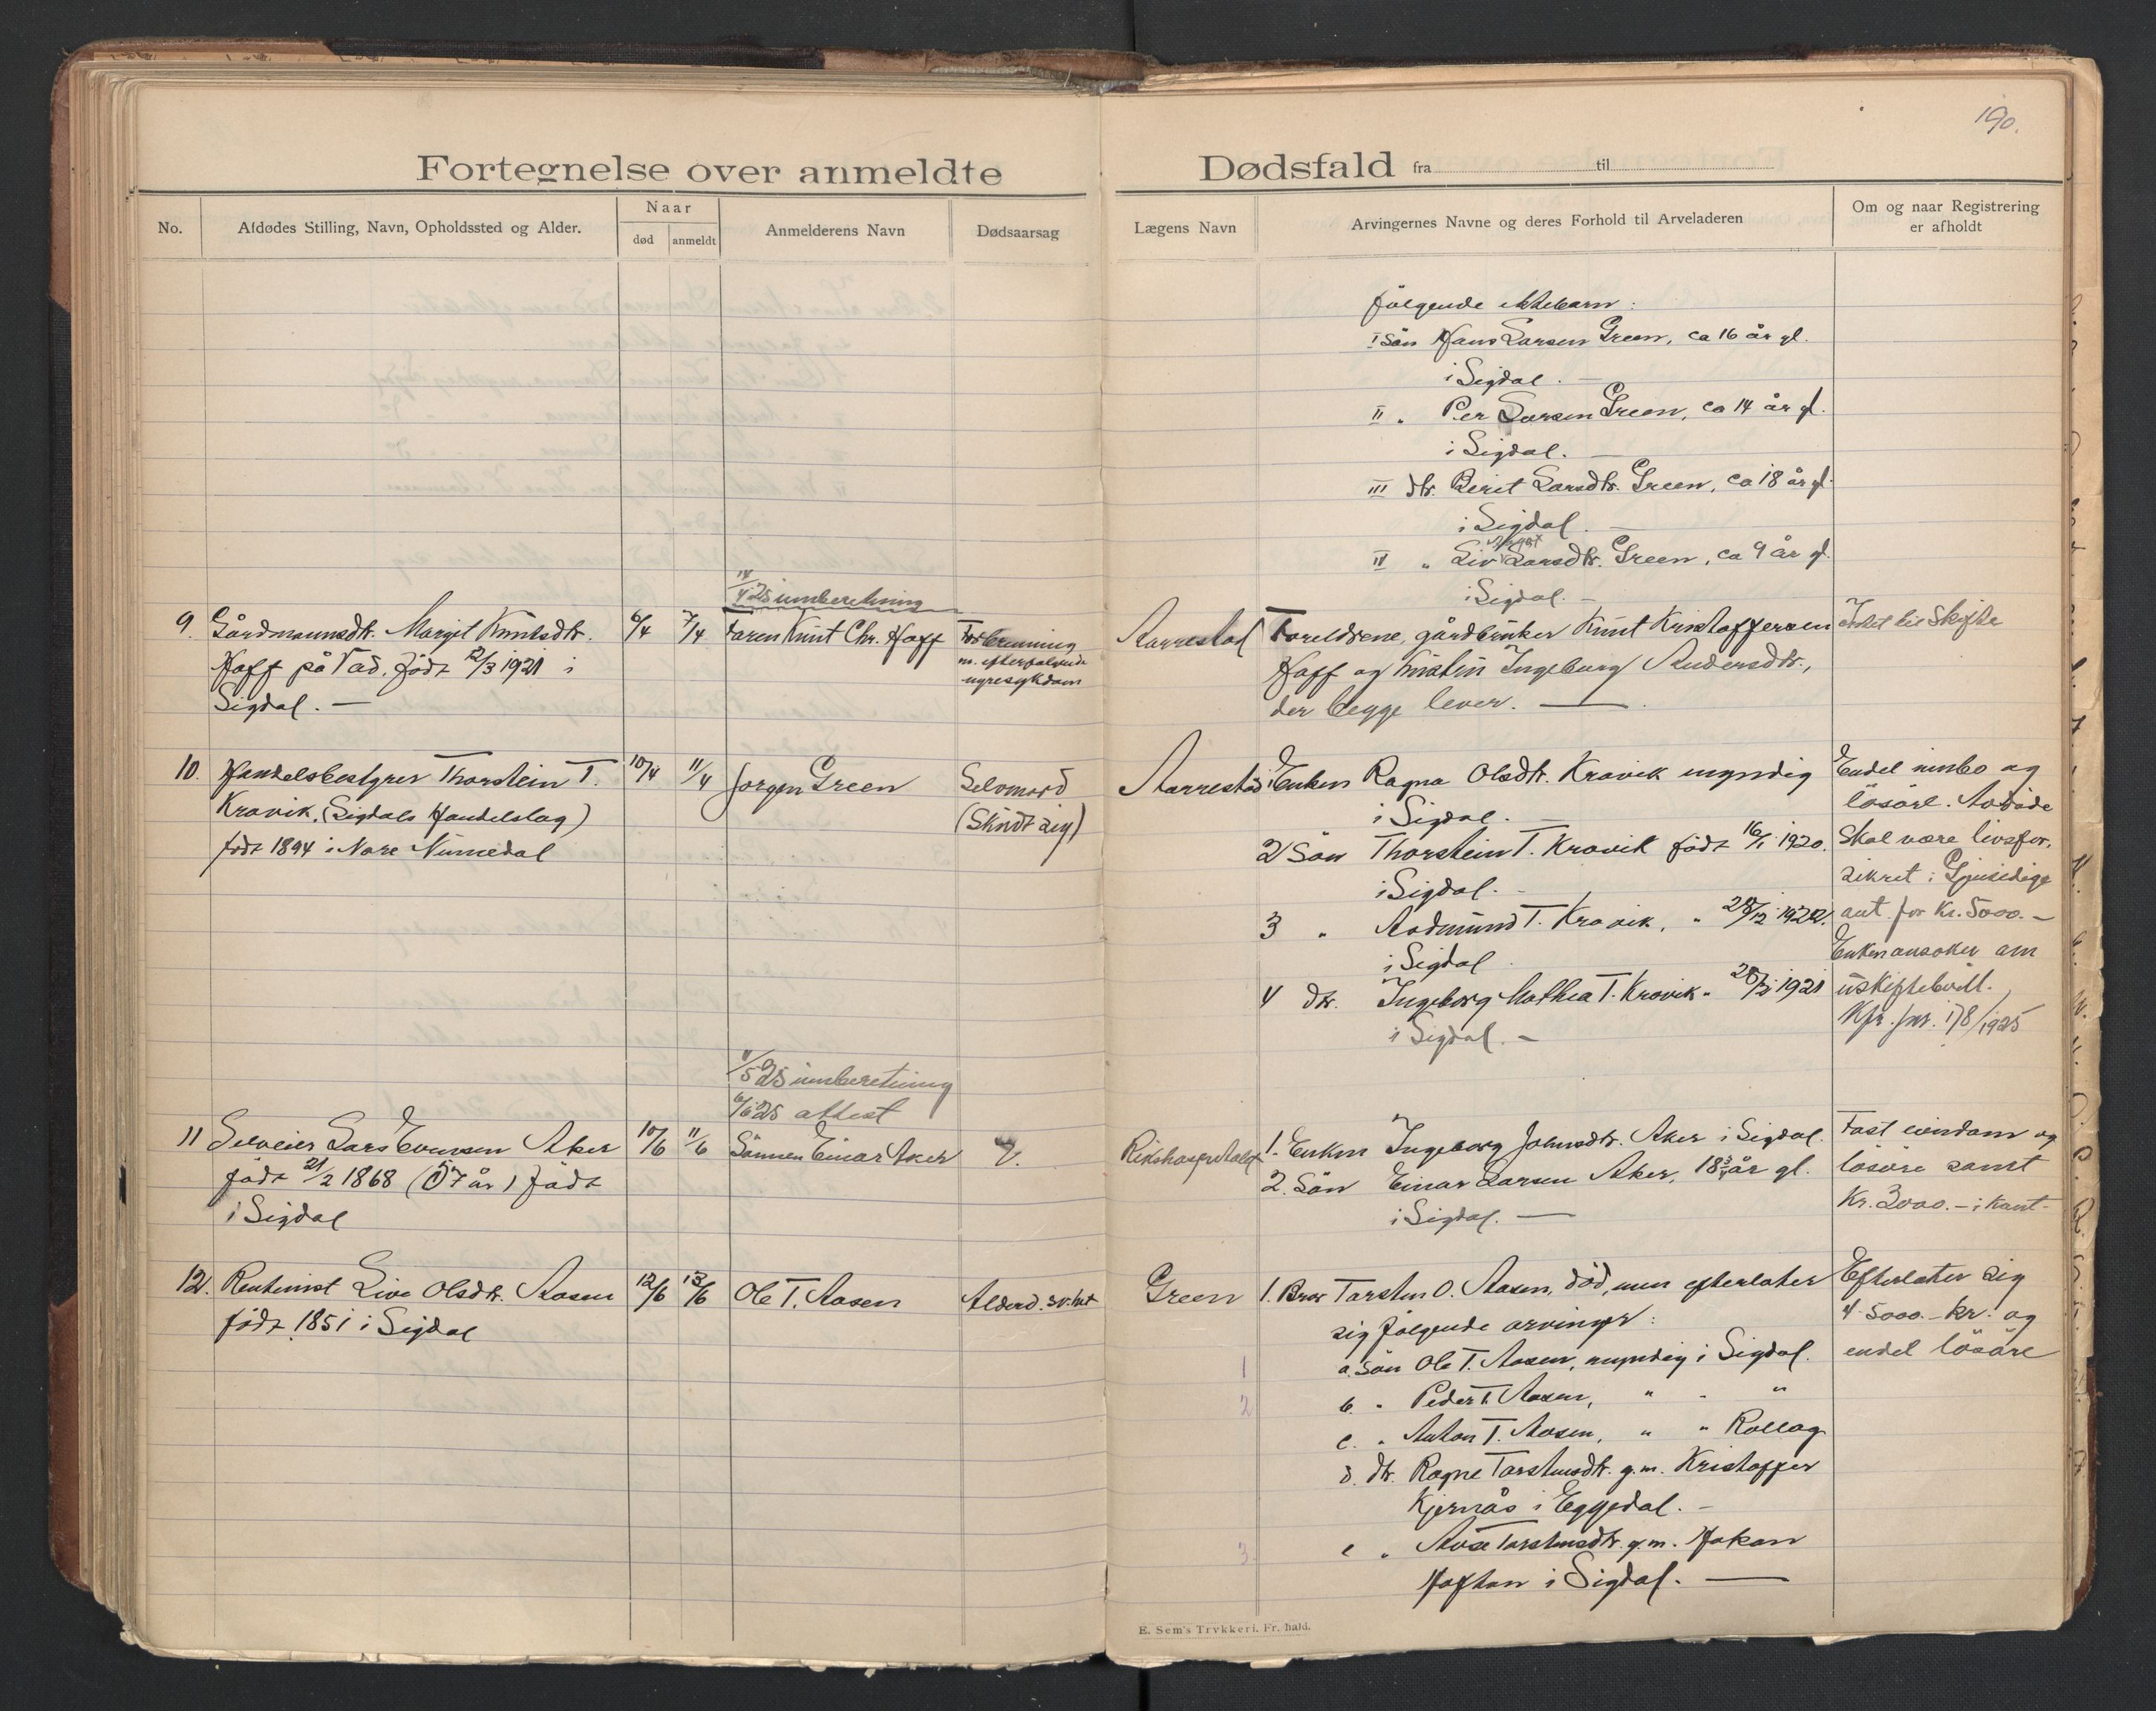 190.
Fortegnelse over anmeldte Dødsfald fra til
No.
Afdødes Stilling, Navn, Opholdssted og Alder.
Naar
død
anmeldt
Anmelderens Navn
Dødsaarsag
Lægens Navn
Arvingernes Navne og deres Forhold til Arveladeren
Om og naar Registrering
er afholdt
følgende ektebarn:
I Søn Hans Larsen Green, ca 16 år gl.
i Sigdal. —
II " Per Larsen Green, ca 14 år gl.
i Sigdal. —
III dtr. Birit Larsdtr. Green, ca 18 år gl.
i Sigdal. —
IV " Liv Larsdtr. Green, ca 9 år gl.
i Sigdal. —
14/4 25 innberetning
9. Gårdmannsdtr. Margit Knutsdtr.
Hoff på Vad, født 12/3 1921 i
Sigdal. —
6/4
7/4
Faren Knut Chr. Hoff
Forbrenning
m. efterfølgende
nyresykdom
Aarrestad
Foreldrene, gårdbruker Knut Kristoffersen
Hoff og hustru Ingeborg Andersdtr.,
der begge lever. —
Intet til skifte
10. Handelsbestyrer Thorstein T.
Kravik, (Sigdals Handelslag)
født 1894 i Nore Numedal
10/4
11/4
Jørgen Green
Selvmord
(Skudt sig)
Aarrestad
1 Enken Ragna Olsdtr. Kravik myndig
i Sigdal. —
2 Søn Thorstein T. Kravik født 16/1 1920.
i Sigdal. —
3 " Aodmund T. Kravik, " 28/12 1922.
i Sigdal.
4 dtr. Ingeborg Mathea T. Kravik " 28/2 1921
i Sigdal. —
Endel innbo og
løsøre. Avdøde
skal være livsfor-
sikret i Gjensidige
ant. for Kr. 5000. —
Enken ansøker om
uskiftebevill.
Kfr. jnr. 178/1925
11/5 25 innberetning
6/6 25 attest
11 Selveier Lars Evensen Aker
født 21/2 1868 (57 år) født
i Sigdal
10/6
11/6
Sønnen Einar Aker
?.
Rikshospitalet
1. Enken Ingeborg Johnsdtr. Aker i Sigdal.
2. Søn Einar Larsen Aker, 18 3/4 år gl.
i Sigdal. —
Fast eiendom og
løsøre samt
Kr. 2000. — i kont-
12. Rentenist Live Olsdtr. Aasen
født 1851 i Sigdal
12/6
13/6
Ole T. Aasen
Alderd. sv. het
Green
1. Bror Torsten O. Aasen, død, men efterlater
sig følgende arvinger:
1 a. Søn Ole T. Aasen, myndig i Sigdal.
2 b. " Peder T. Aasen, " " "
c. " Anton T. Aasen, " " Rollag
d. dtr. Ragne Torstensdtr. g.m. Kristoffer
Kjernås i Eggedal. —
3. e " Aase Torstensdtr. g.m. Håkon
Hoftun i Sigdal. —
Efterlater sig
4-5000.- kr. og
endel løsøre
E. Sem's Trykkeri. Fr. hald.